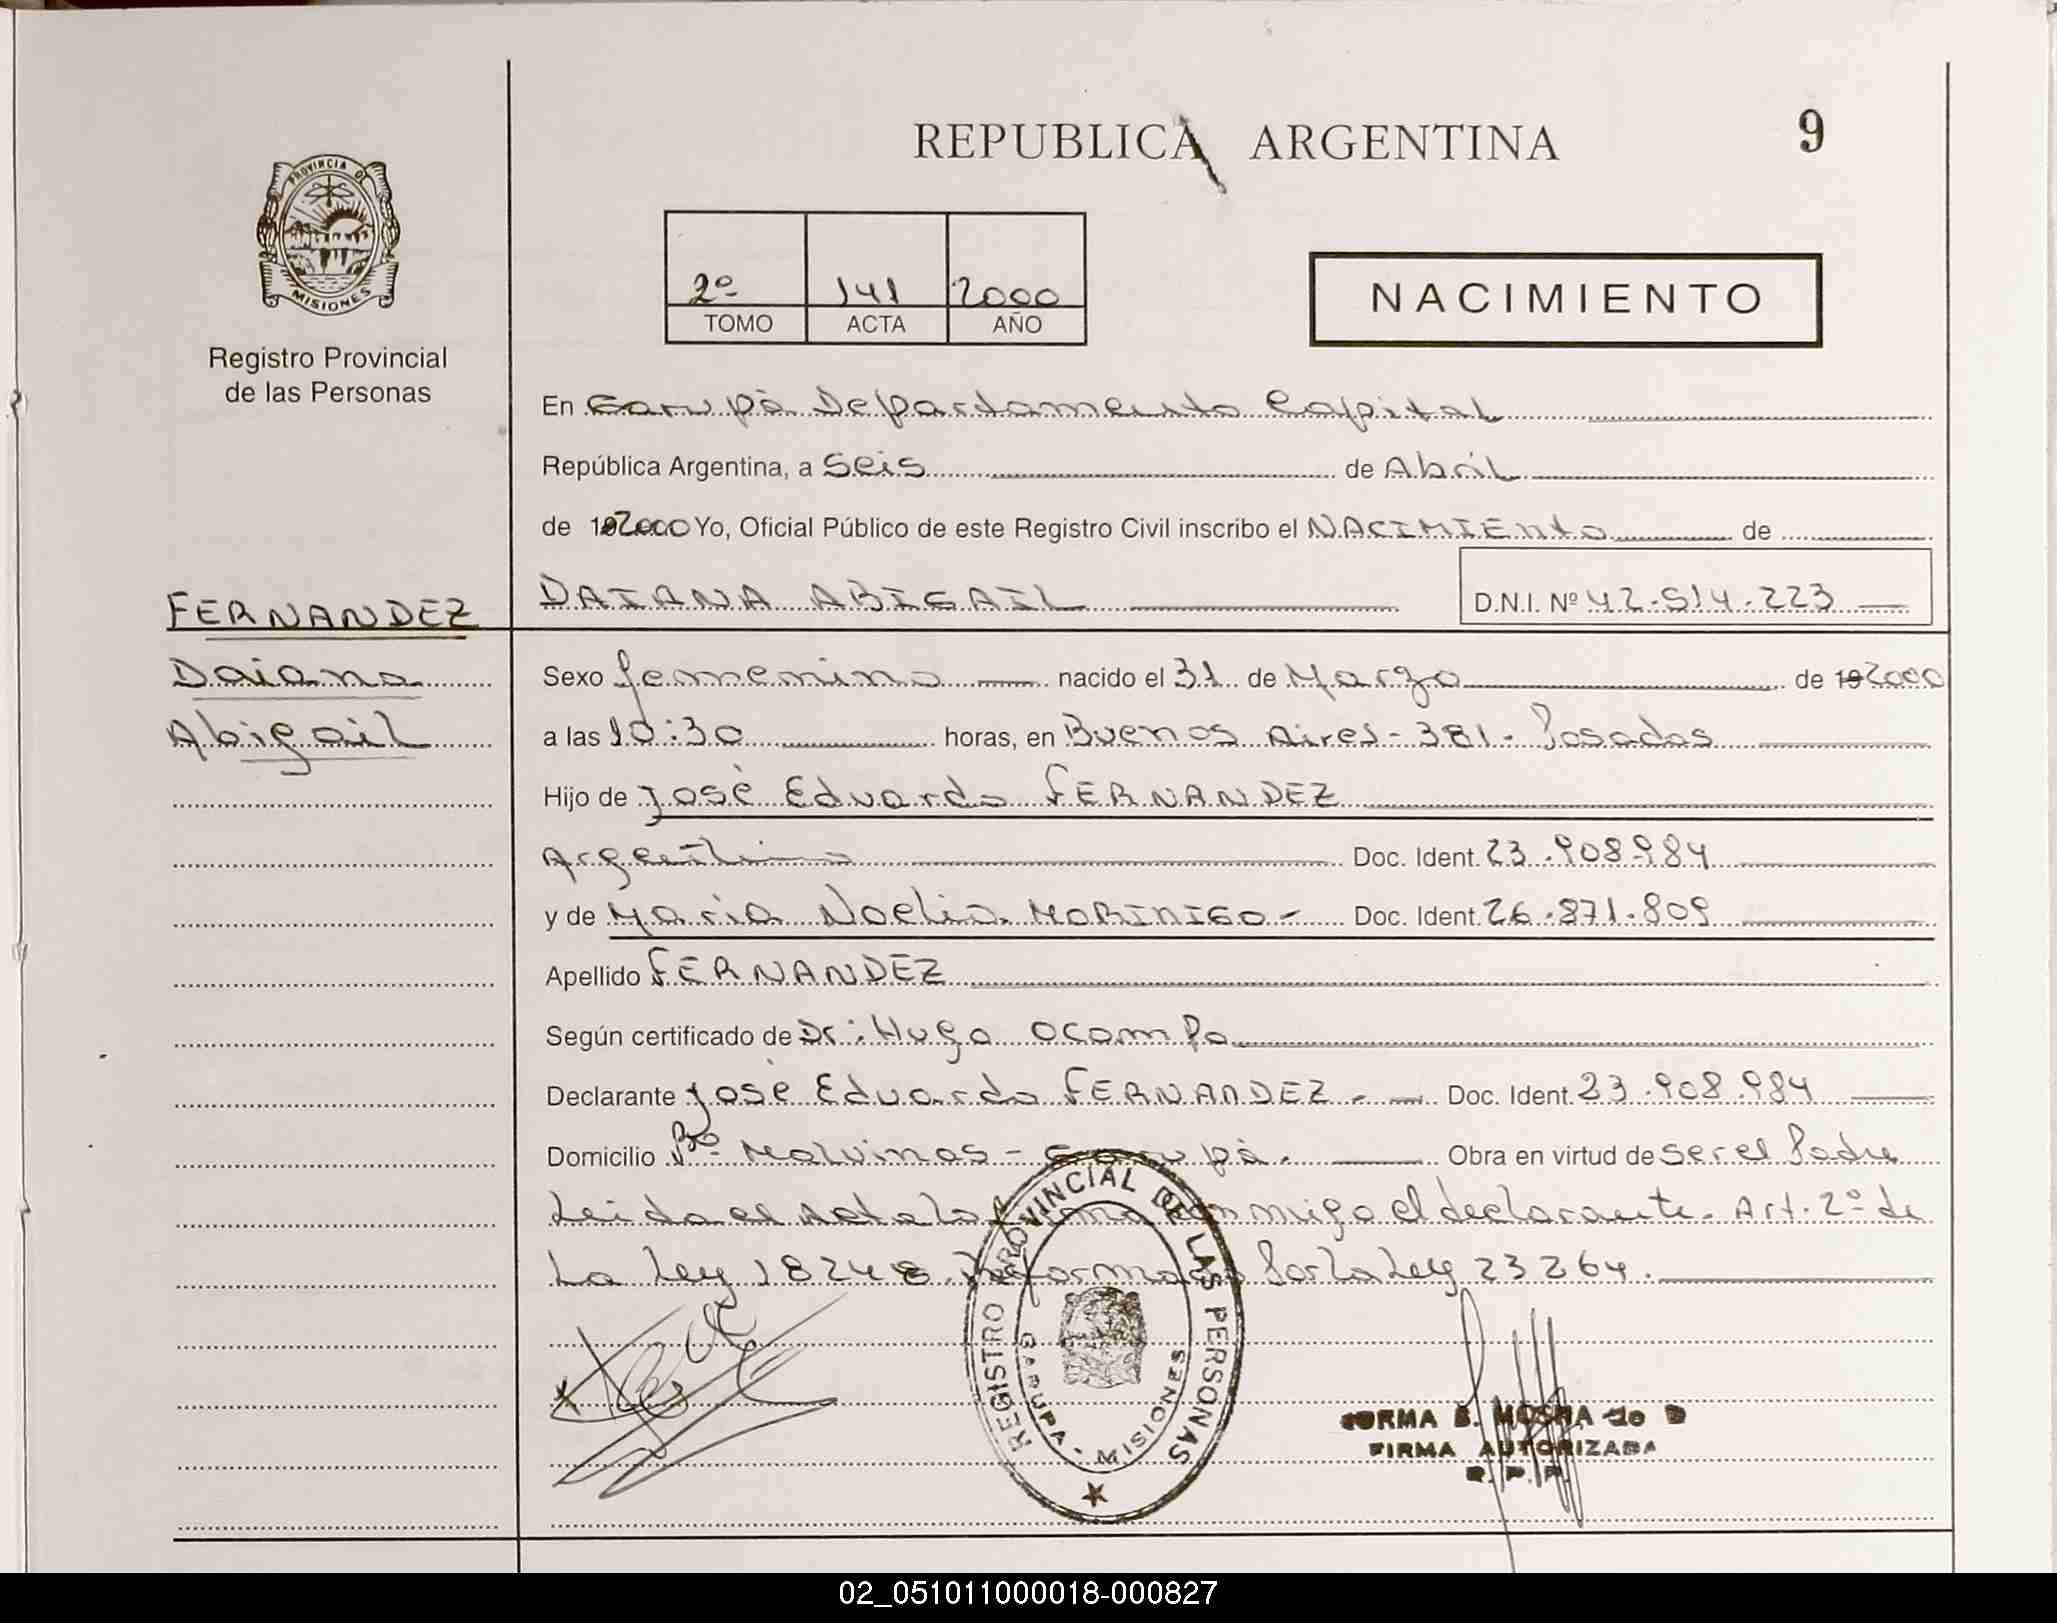 REPUBLICA ARGENTINA
9
PROVINCIA DE
MISIONES
Registro Provincial
de las Personas
2º 141 2000
TOMO ACTA AÑO
NACIMIENTO
En Garupá Departamento Capital
República Argentina, a Seis de Abril
de 192000 Yo, Oficial Público de este Registro Civil inscribo el NACIMIENTO de
DAIANA ABIGAIL D.N.I. Nº 42.514.223
FERNANDEZ
Daiana
Abigail
Sexo femenino nacido el 31 de Marzo de 192000
a las 10:30 horas, en Buenos Aires - 381 - Posadas
Hijo de José Eduardo FERNANDEZ
Argentino Doc. Ident. 23.908.984
y de María Noelia MORINIGO - Doc. Ident. 26.871.809
Apellido FERNANDEZ
Según certificado de Dr: Hugo Ocampo
Declarante José Eduardo FERNANDEZ - Doc. Ident. 23.908.984
Domicilio Bº Malvinas - Garupá. Obra en virtud de ser el Padre
Leida el Acta la firma conmigo el declarante. Art. 2º de
La Ley 18248 Reformado Por la Ley 23264.
REGISTRO PROVINCIAL DE LAS PERSONAS
GARUPA - MISIONES
B. de D
FIRMA AUTORIZADA
R. P. P.
02_051011000018-000827